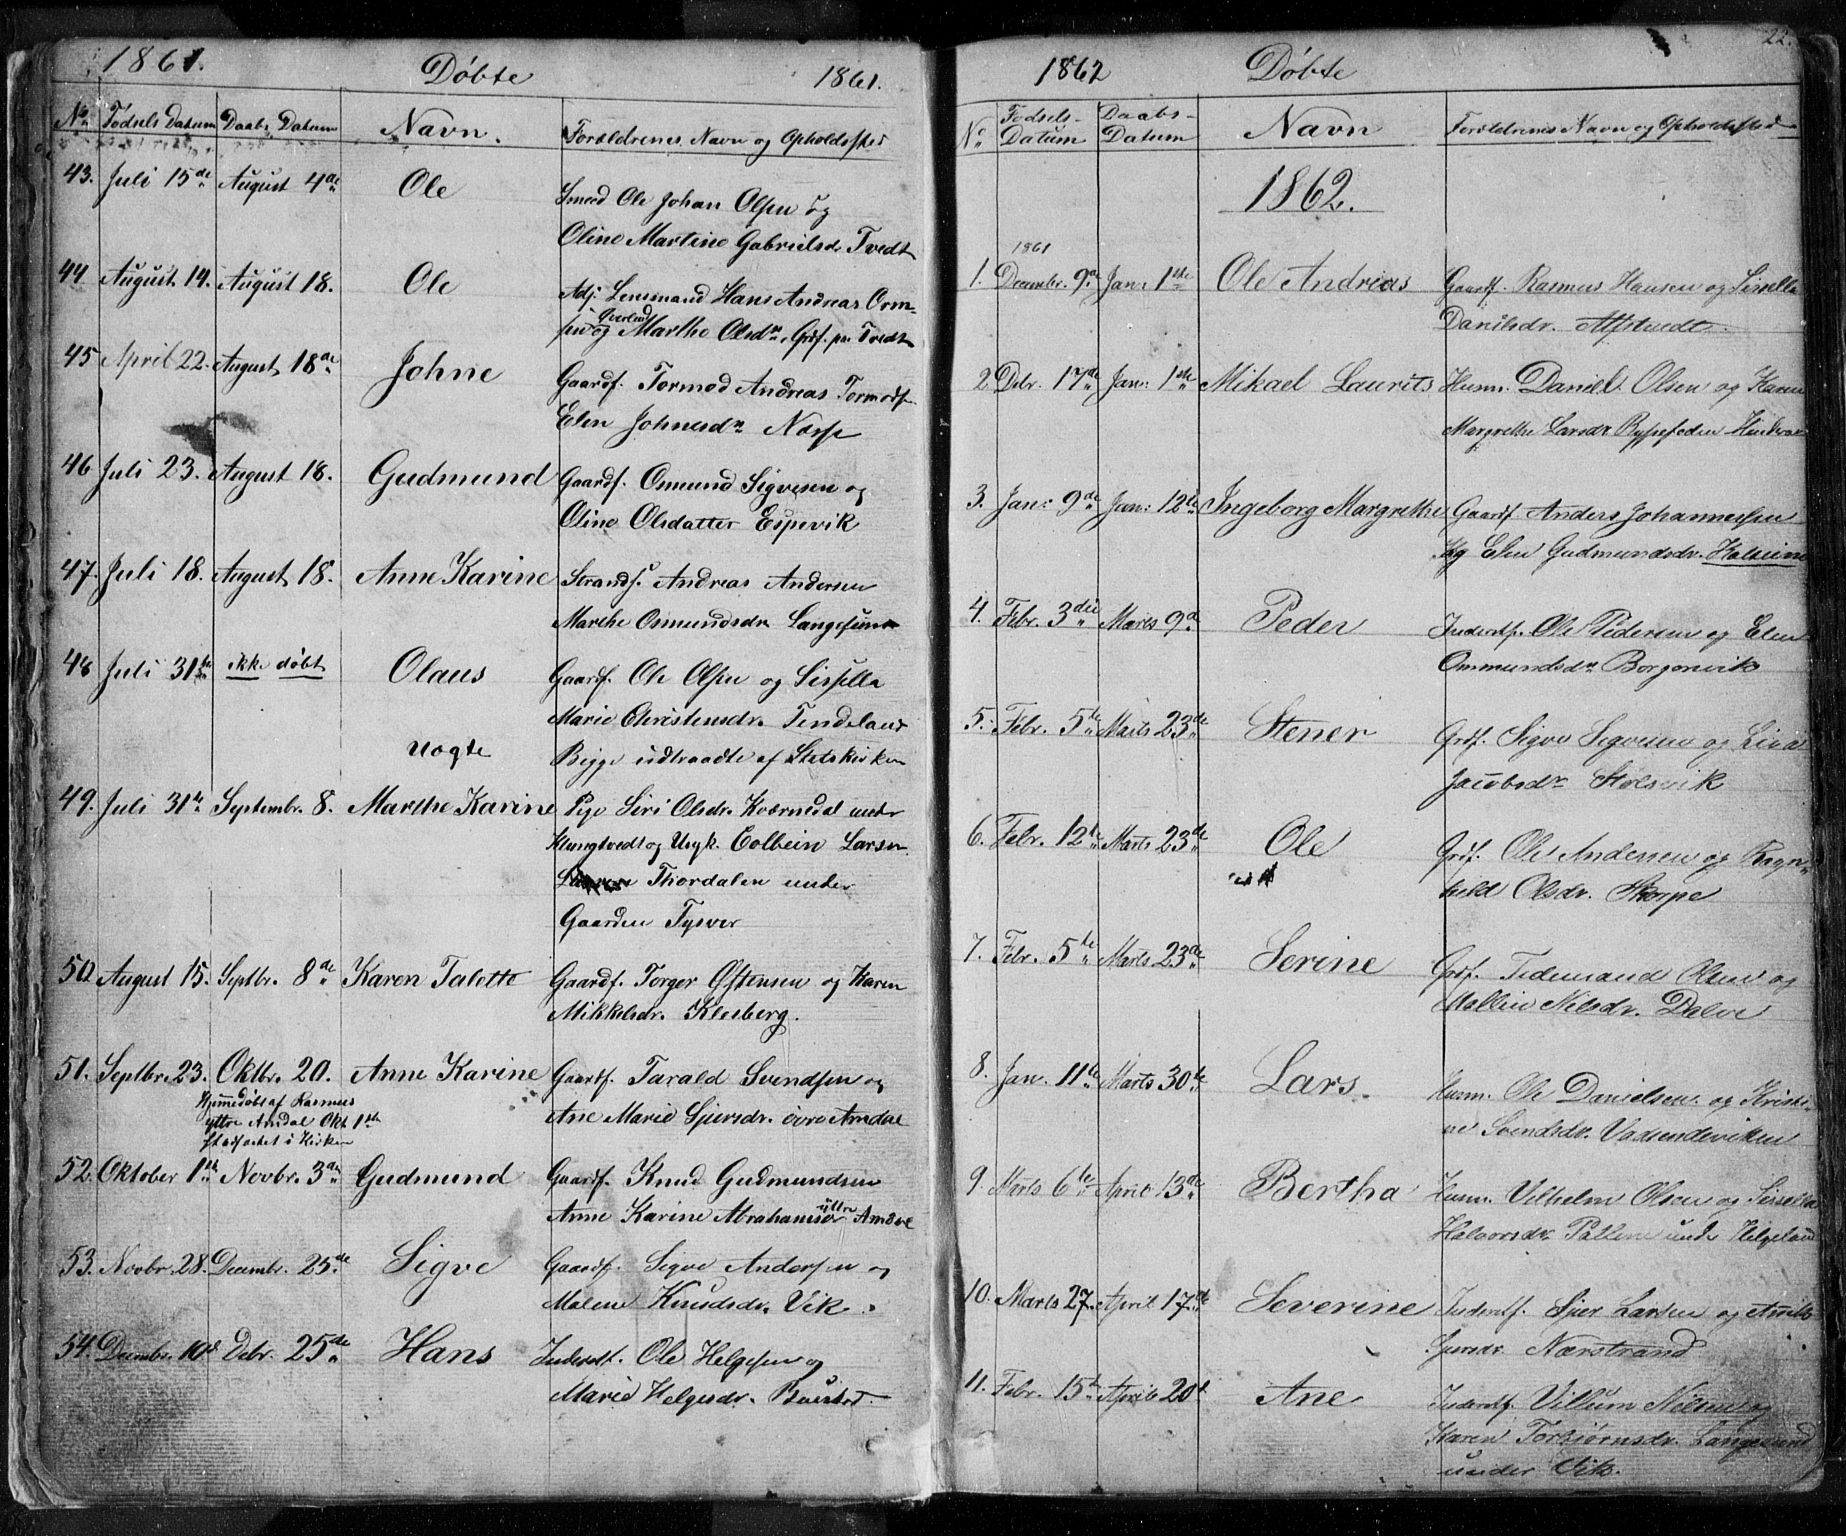 1861. Døbte 1861.
No. Fødsels Datum Daabs Datum Navn. Forældrenes Navn og Opholdssted
43. Juli 15de August 4de Ole Smed Ole Johan Olsen og
Oline Martine Gabrielsdr Tvedt
44 August 14. August 18. Ole Adj: Lensmand Hans Andreas Orm-
sen og Marthe Olsdr. Grdf. paa Tvedt
45 April 22. August 18de Johne Gaardf. Tormod Andreas Tormods.
Elen Johnesdr
46 Juli 23. August 18. Gudmund Gaardf. Osmund Sigvesen og
Oline Olsdatter Espevik
47. Juli 18. August 18. Anne Karine Strands. Andreas Andersen
Marthe Osmundsdr Langesund
48 Juli 31te ikke døbt Olaus Gaardf. Ole Olsen og Sissella
Marie Christensdr. Tendeland
uægte Begge udtraadte af Statskirken
49. Juli 31te Septembr. 8. Marthe Karine Pige Siri Olsdr. Kværnedal under
Klungtvedt og Ungk. Colbein Larsen
Thordalen under
Gaarden Tysver
50. August 15. Septbr. 8de Karen Talette Gaardf. Torger Østensen og Karen
Mikkelsdr. Klesberg.
51. Septbr. 23. Oktbr. 20. Anne Karine Gaardf. Tarald Svendsen og
Hjemmedøbt af Rasmus
yttre Amdal Okt. 1ste
stadfæstet i Kirken
Ane Marie Sjursdr. øvre Amdal
52. Oktober 1ste Novbr. 3de Gudmund Gaardf. Knud Gudmundsen
Anne Karine Abrahamsdr yttre Amdal
53. Novbr. 28. Decembr. 25de Sigve Gaardf. Sigve Andersen og
Malene Knudsdr. Vik.
54. Decembr. 10d Debr. 25de Hans Inderstf. Ole Helgesen og
Marie Helgesdr.
22.
1862 Døbte
No. Fødsels-Datum Daabs-Datum Navn Forældrenes Navn og Opholdssted
1862.
1861
1. Decembr. 9de Jan: 1ste Ole Andreas Gaardf. Rasmus Hansen og Sissella
Danielsdr.
2 Debr. 17de Jan: 1ste Mikael Laurits Husm. Daniel Olsen og Karen
Margrethe Larsdr
3. Jan: 9de Jan: 12te Ingeborg Margrethe Gaardf. Anders Johannessen
og Elen Gudmundsdr.
4. Febr. 3die Marts 9d Peder Inderstf. Ole Pedersen og Elen
Ommundsdr Borgenvik
5. Febr. 5te Marts 23de Stener Grdf. Sigve Sigvesen og
Jacobsdr Stølsvik
6. Febr. 12te Marts 23de Ole Grdf. Ole Andersen og Ragn-
hild Olsdr. Skorpe
7. Febr. 5te Marts 23de Serine Grdf. Tidemand Olsen og
Mallin Nilsdr. Dalve
8. Jan. 11te Marts 30te Lars. Husm. Ole Danielsen og Kristi-
ne Svendsdr. Vadsendeviken
9 Marts 6te April 13de Bertha Husm. Vilhelm Olsen og Sissella
Halvorsdr. Pallen under Helgeland
10. Marts 27. April 17de Severine Inderstf. Sjur Larsen og
Sjursdr. Nærstrand
11. Febr. 15de April 20d Ane Inderstf. Villum Nilsen og
Karen Torbjørnsdr. Langesund
under Vik.